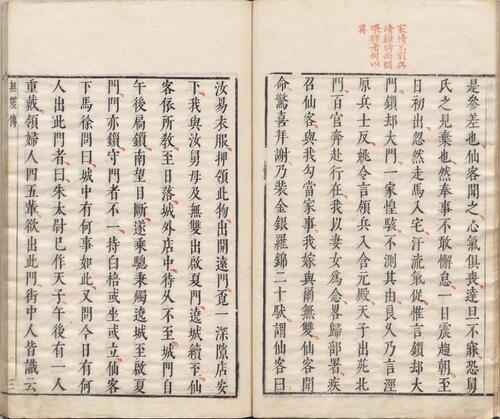 家情不割與
靖難時尚問
喂猪者何以
異
是參差也仙客聞之心氣俱喪達旦不寐恐舅
氏之見棄也然奉事不敢懈怠一日震趨朝至
日初出忽然走馬入宅汗流氣促惟言鎖却大
門鎖却大門一家惶駭不測其由良久乃言涇
原兵士反姚令言領兵入含元殿天子出苑北
門百官奔赴行在我以妻女爲念畧歸部署疾
召仙客與我勾當家事我嫁與爾無雙仙客聞
命驚喜拜謝乃裝金銀羅錦二十馱謂仙客曰
汝易衣服押領此物出開遠門覓一深隙店安
下我與汝舅母及無雙出啟夏門遶城續至仙
客依所教至日落城外店中待久不至城門自
午後扃鎖南望目斷遂乘驄秉燭遶城至啟夏
門門亦鎖守門者不一持白棓或坐或立仙客
下馬徐問曰城中有何事如此又問今日有何
人出此門者曰朱太尉已作天子午後有一人
重戴領婦人四五輩欲出此門街中人皆識云
無雙傳
三